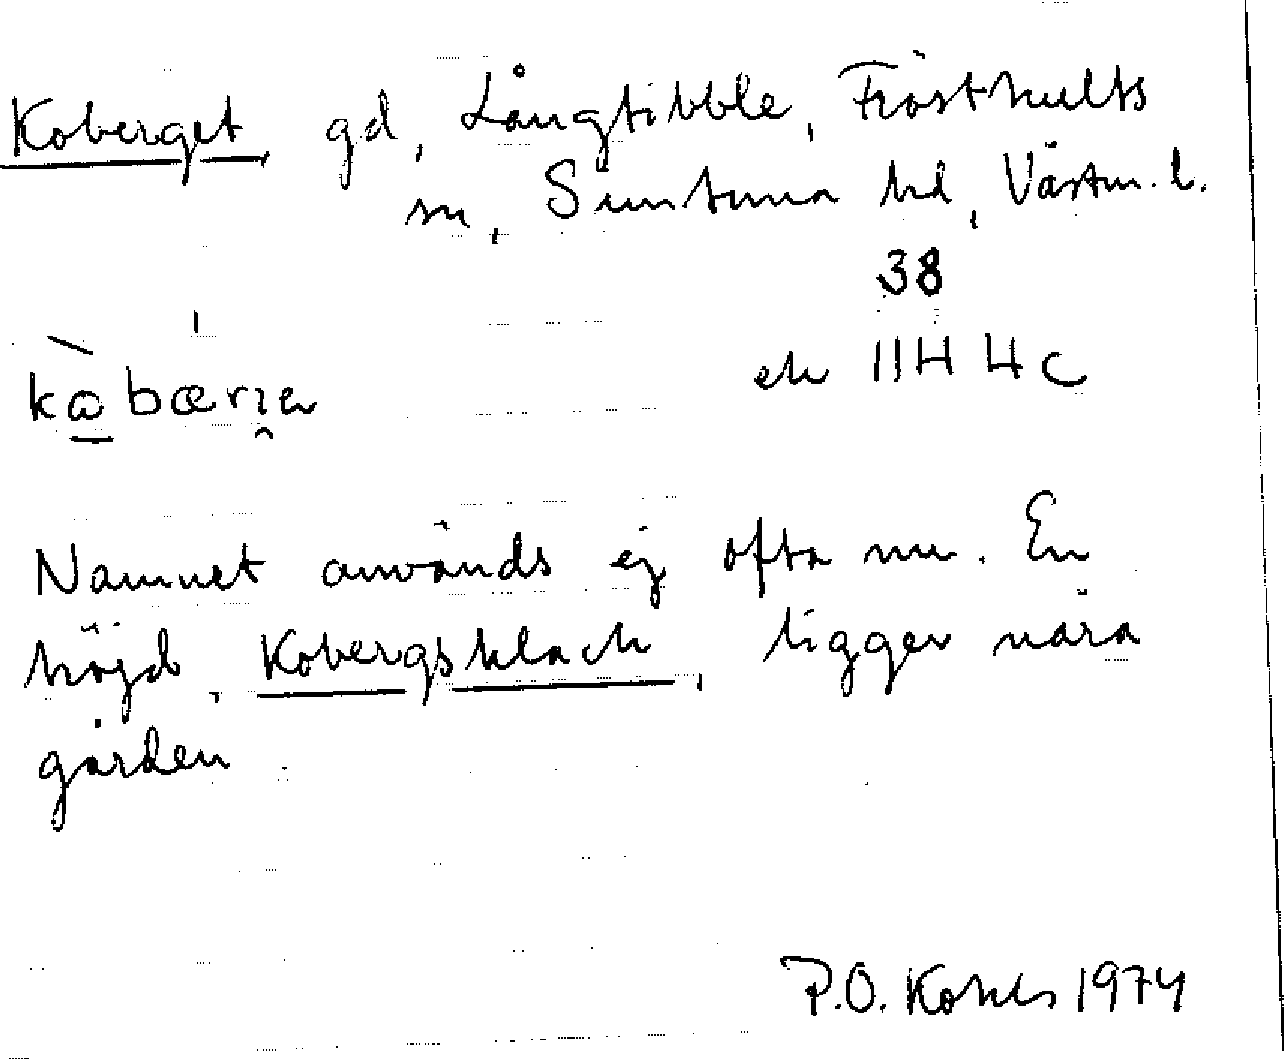 Koberget gd, Långtibble, Frösthults
sn, Simtuna hd, Västm. l.
38
ek 11H 4c
Namnet används ej ofta nu. En
höjd, Kobergsklack, ligger nära
gården.
P.O. 1974